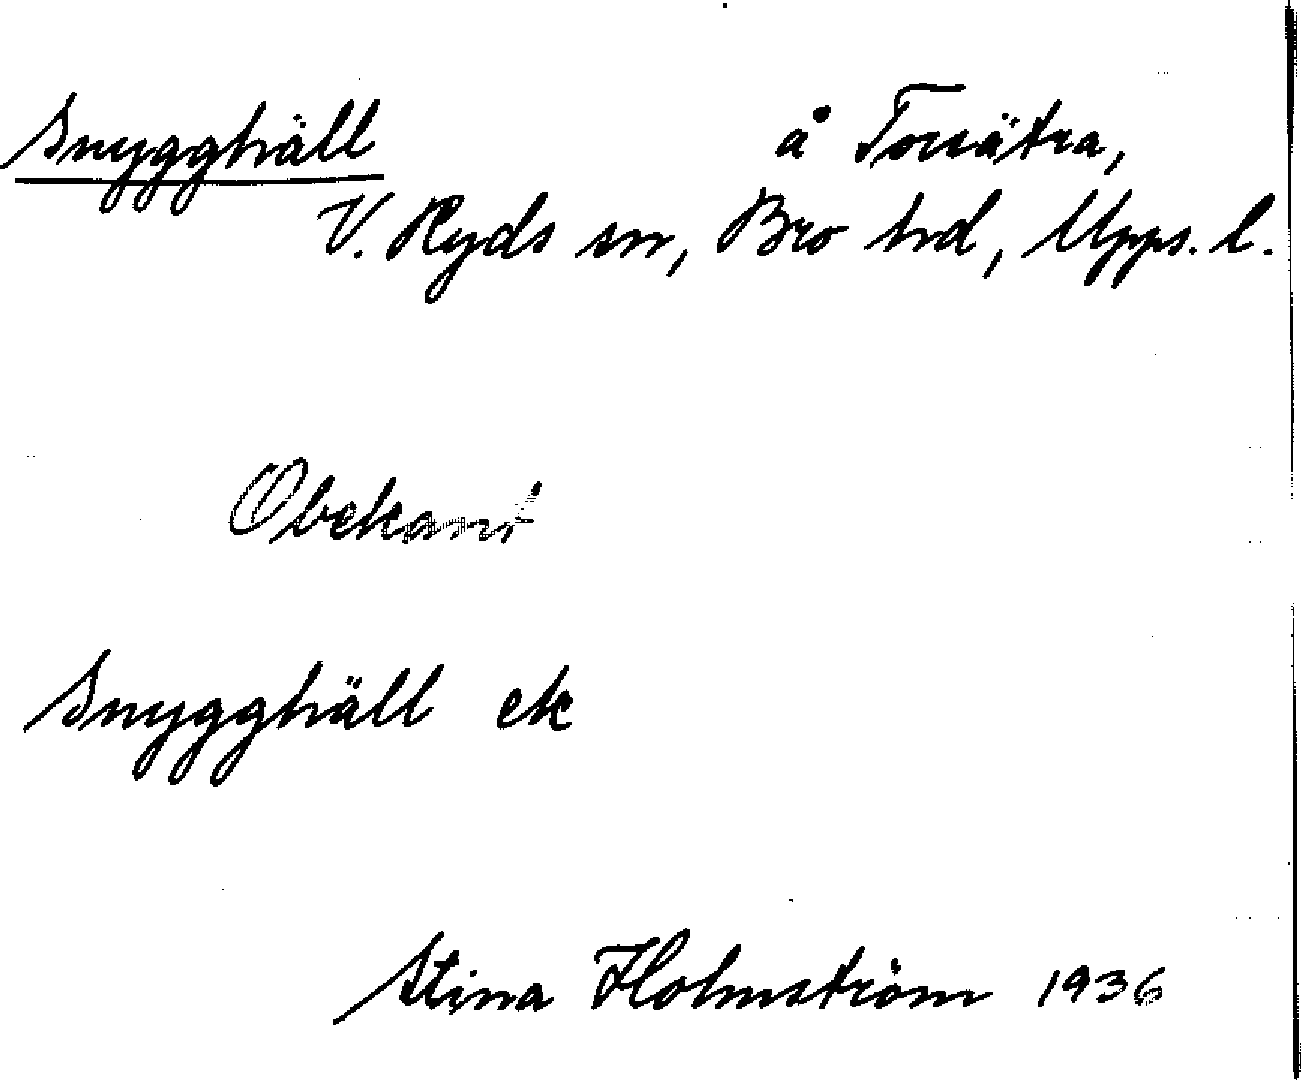 Snygghäll å Torrätra,
V. Ryds sn, Bro hd, Upps. l.
Obekant
Snygghäll ek
Stina Holmström 1936